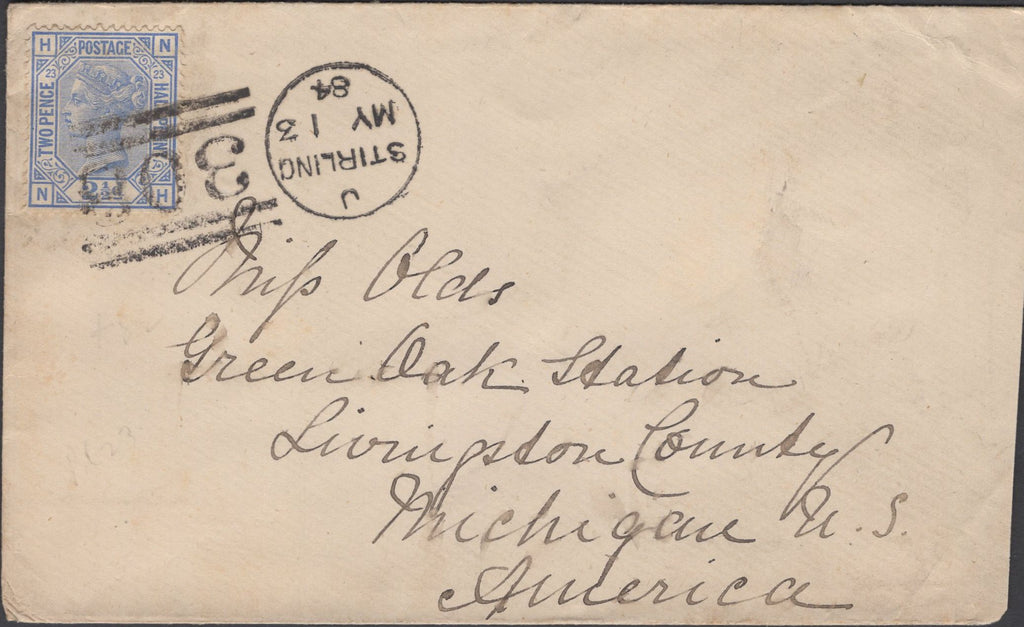 H POSTAGE N
23 23
TWO PENCE HALFPENNY
N 2½d H
303
J
STIRLING
MY 13
84
Miss Olds
Green Oak Station
Livingston County
Michigan U.S.
America